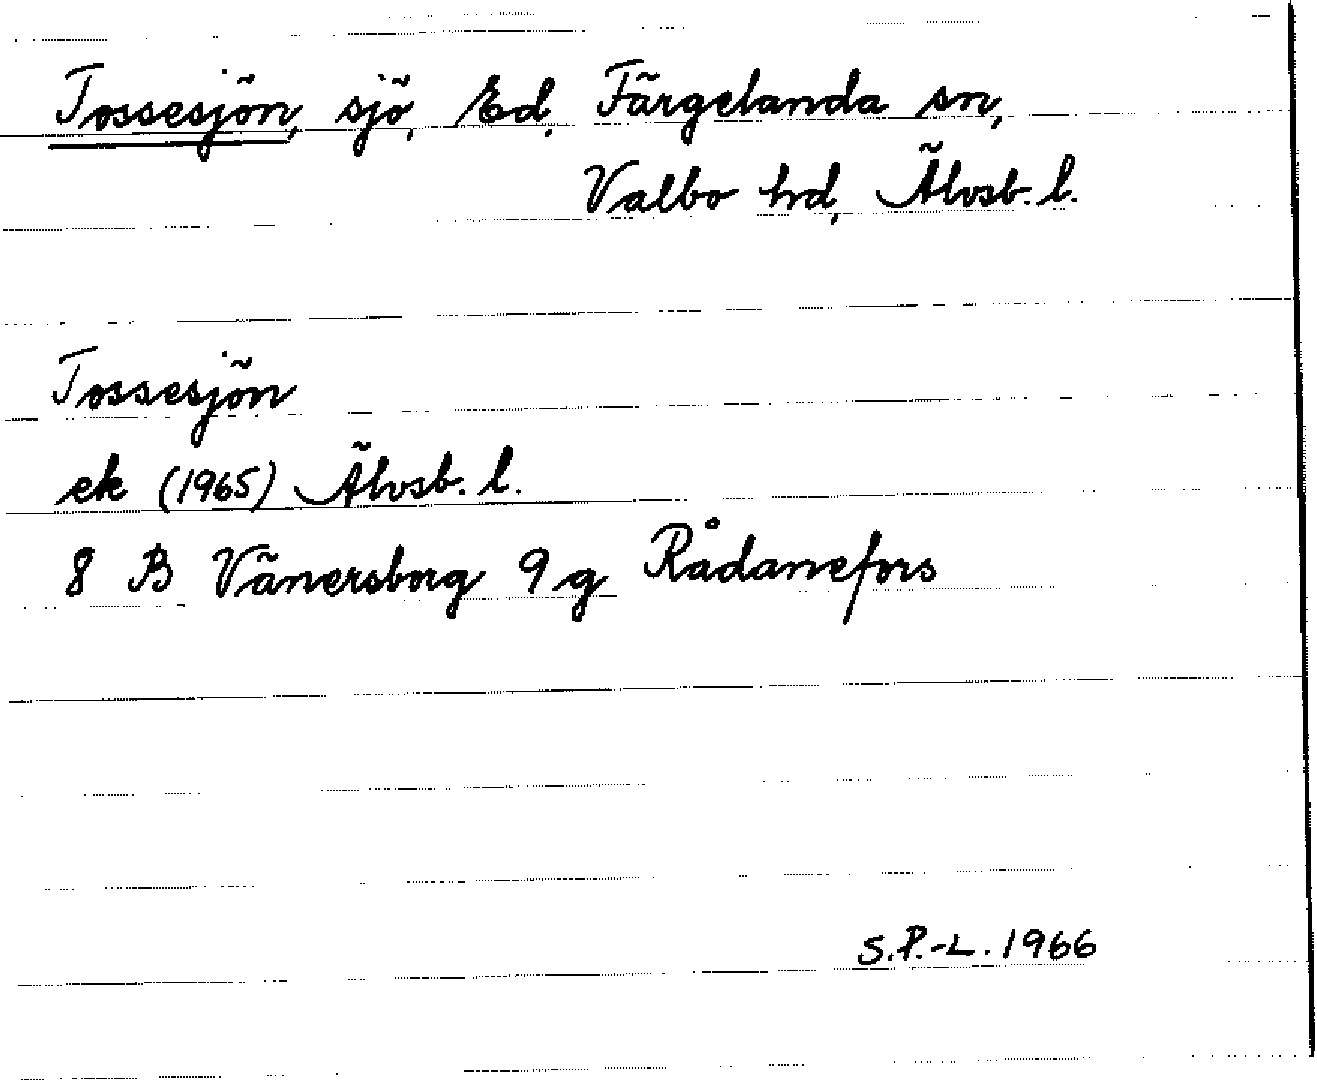 Tossesjön, sjö, Ed, Färgelanda sn,
Valbo hd, Älvsb. l.
Tossesjön
ek (1965) Älvsb. l.
8 B Vänersborg 9 g Rådanefors
S.P.-L. 1966